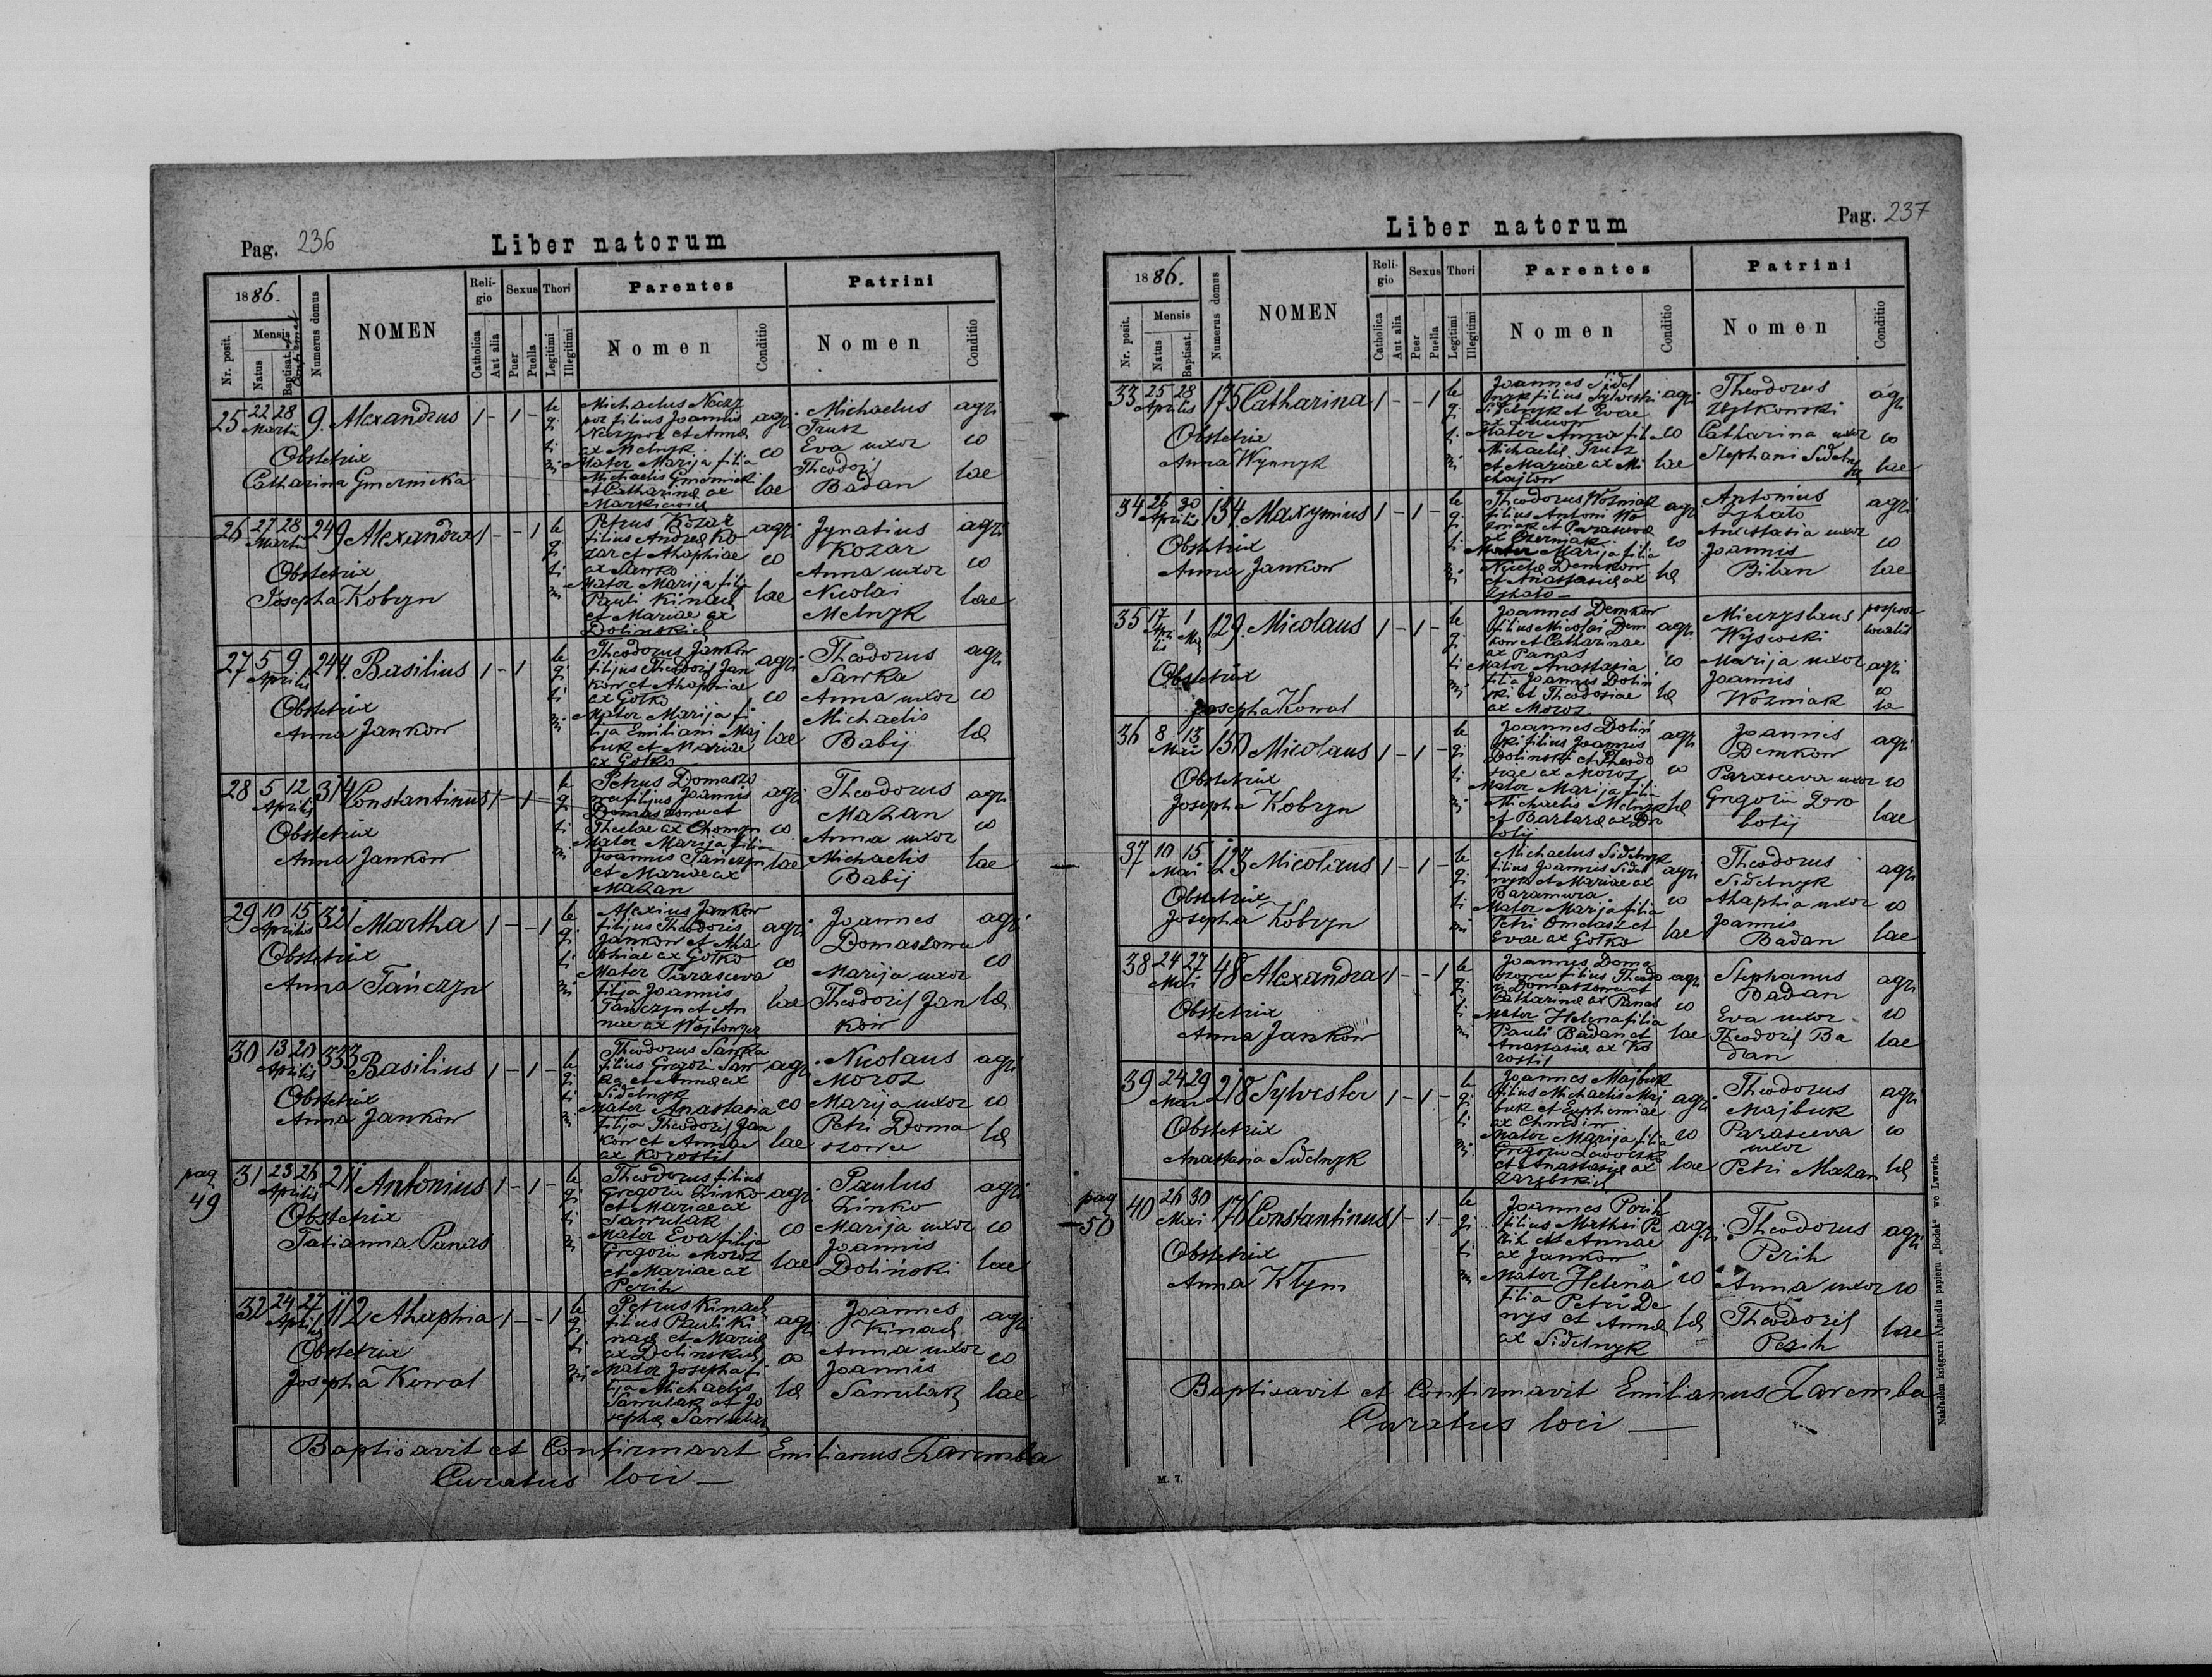 Pag. 236
Liber natorum
1886.
Nr. posit.
Mensis
Natus
Baptisat.
Numerus domus
NOMEN
Religio
Catholica
Aut alia
Sexus
Puer
Puella
Thori
Legitimi
Illegitimi
Parentes
Nomen
Conditio
Patrini
Nomen
Conditio
25 22 28 Martii 9. Alexandrus 1 - 1 -
Obstetrix
Catharina Gmernicka
legitimi
filius Joannis
et Anna
ex Melnyk
Mater Marija filia
Michaelis
et Catharina ex
agricolae
Michaelus
Trusz
Eva uxor
Theodori
Badan
agricolae
26 27 28 Martii 249 Alexandra 1 - - 1
Obstetrix
Josepha Kobryn
legitimi
Petrus Kozar
filius Andreæ Ko
zar et Ahaphiae
ex Sawko
Mater Marija filia
Pauli Kinach
et Mariae ex
Dolinskich
agricolae
Jgnatius
Kozar
Anna uxor
Nicolai
Melnyk
agricolae
27 5 9 Aprilis 244. Basilius 1 - 1
Obstetrix
Anna Jankow
legitimi
Theodorus Jankow
filijus Theodorij Jan
kow et Ahaphiae
ex Gołko
Mater Marija fi
lija Emiliani Maj
buk et Mariae
ex Gołko
agricolae
Theodorus
Sawka
Anna uxor
Michaelis
Babij
agricolæ
28 5 12 Aprilis 314 Constantinus 1 - 1 -
Obstetrix
Anna Jankow
legitimi
Petrus Domaszo
filijus Joannis
et
Theclae ex Chomyn
Mater Marija filia
Joannis Tańczyn
et Mariae ex
Mazan
agricolae
Theodorus
Mazan
Anna uxor
Michaelis
Babij
agricolae
29 10 15 Aprilis 321 Martha 1 - - 1
Obstetrix
Anna Tańczyn
legitimi
Alexius Jankow
filijus Theodoris
Jankow et Aha
phiae ex Gołko
Mater Parasceva
filija Joannis
Tańczyn et An
nae ex
agricolae
Joannes
Domaszowec
Marija uxor
Theodorij Jan
kow
agricolæ
30 13 20 Aprilis 333 Basilius 1 - 1 -
Obstetrix
Anna Jankow
legitimi
Theodorus Sawka
filius Gregorii Saw
ka et Annæ ex
Sidelnyk
Mater Anastasia
filja Theodorij Jan
kow et Annae
ex Korostil
agricolae
Nicolaus
Moroz
Marija uxor
Petri Doma
szowec
agricolæ
pag
49
31 23 26 Aprilis 211 Antonius 1 - 1 -
Obstetrix
Tatianna Panas
legitimi
Theodorus filius
Gregorii Zinko
et Mariae ex
Sawulak
Mater Eva filija
Gregorii Moroz
et Mariae ex
Perih
agricolae
Paulus
Zinko
Marija uxor
Joannis
Doliński
agricolae
32 24 27 Aprilis 112 Ahaphia 1 - - 1
Obstetrix
Josepha Kowal
legitimi
Petrus Kinach
filius Pauli Ki
nach et Mariæ
ex Dolinskich
Mater Josepha fi
lja Michaelis
Sawulak et Jo
sephæ Sawulak
agricolæ
Joannes
Kinach
Anna uxor
Joannis
Sawulak
agricolae
Baptisavit et Confirmavit Emilianus Zaremba
Curatus loci —
Pag. 237
Liber natorum
1886.
Nr. posit.
Mensis
Natus
Baptisat.
Numerus domus
NOMEN
Religio
Catholica
Aut alia
Sexus
Puer
Puella
Thori
Legitimi
Illegitimi
Parentes
Nomen
Conditio
Patrini
Nomen
Conditio
33 25 28 Aprilis 175 Catharina 1 - - 1
Obstetrix
Anna Wynnyk
legitimi
Joannes Sidel
nyk filius Sylvestri
Sidelnyk et Evae
Mater Anna filia
Michaelis Trusz
et Mariae ex Mi
chajlow
agricolae
Theodorus
Catharina uxor
Stephani Sidelnyk
agricolae
34 26 30 Aprilis 134 Maxymius 1 - 1 -
Obstetrix
Anna Jankow
legitimi
Theodorus Wozniak
filius Antoni Wo
zniak et Parascevæ
Mater Marija filia
Demkow
et Anastasiæ ex
agricolæ
Antonius
Anastasia uxor
Joannis
Bilan
agricolae
35 17 Aprilis 1 Maj 129. Nicolaus 1 - 1 -
Obstetrix
Josepha Kowal
legitimi
Joannes Demkow
filius Nicolai Dem
kow et Catharinae
ex Panas
Mater Anastasia
filia Joannis Dolin
ski et Theodosiae
ex Moroz
agricolæ
Mieczyslaus
Wysocki
Marija uxor
Joannis
Wozniak
agricolæ
36 8 13 Maii 130 Nicolaus 1 - 1 -
Obstetrix
Josepha Kobryn
legitimi
Joannes Dolin
ski filius Joannis
Dolinski et Theodo
siae ex Moroz
Mater Marija filia
Michaelis Melnyk
et Barbaræ ex Dro
botij
agricolæ
Joannis
Demkow
Parasceva uxor
Gregorii Dro
botij
agricolae
37 10 15 Mai 123 Nicolaus 1 - 1 -
Obstetrix
Josepha Kobryn
legitimi
Michaelus Sidelnyk
filius Joannis Sidel
nyk et Mariae ex
Baramura
Mater Marija filia
Petri et
Evae ex Gołko
agricolae
Theodorus
Sidelnyk
Ahaphia uxor
Joannis
Badan
agricolae
38 24 27 Mai 48 Alexandra 1 - - 1
Obstetrix
Anna Jankow
legitimi
Joannes Doma
szowec filius Theodo
ri Domaszowec et
Catharinæ ex Panas
Mater Helena filia
Pauli Badan et
Anastasiæ ex Ko
rostil
agricolae
Stephanus
Badan
Eva uxor
Theodorij Ba
dan
agricolae
39 24 29 Mai 218 Sylvester 1 - 1 -
Obstetrix
Anastasia Sidelnyk
legitimi
Joannes Majbuk
filius Michaelis Maj
buk et Euphemiae
Mater Marija filia
Gregorii
et Anastasiæ ex
agricolae
Theodorus
Majbuk
Parasceva
uxor
Petri Mazan
agricolæ
pag
50
40 26 30 Mai 176 Constantinus 1 - 1 -
Obstetrix
Anna Klym
legitimi
Joannes Perih
filius Mathei Pe
rih et Annae
ex Jankow
Mater Helena
filia Petri De
nys et Annæ
ex Sidelnyk
agricolæ
Theodorus
Perih
Anna uxor
Theodorij
Perih
agricolae
Baptisavit et Confirmavit Emilianus Zaremba
Curatus loci —
M. 7.
Nakładem księgarni i handlu papieru „Bodek“ we Lwowie.